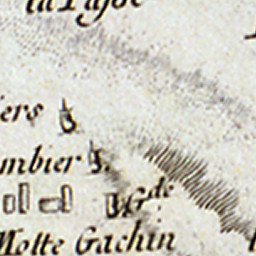 la Pajoe
iers
mbier
G.de
Motte Gachin